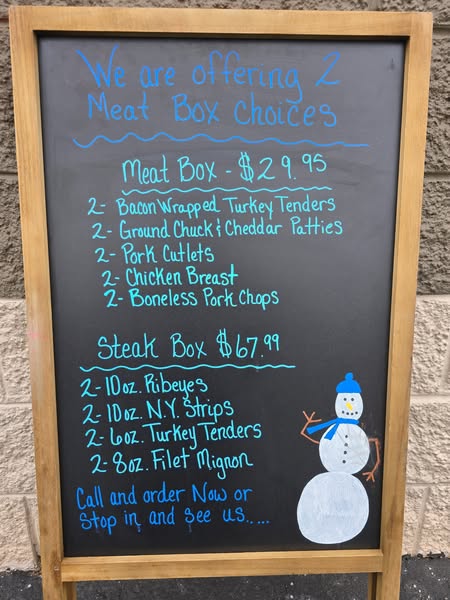 We are offering 2
Meat Box Choices
Meat Box - $29.95
2- Bacon Wrapped Turkey Tenders
2- Ground Chuck & Cheddar Patties
2- Pork Cutlets
2- Chicken Breast
2- Boneless Pork Chops
Steak Box $67.99
2-10oz. Ribeyes
2-10oz. N.Y. Strips
2-6oz. Turkey Tenders
2-8oz. Filet Mignon
Call and order Now or
Stop in and see us.....